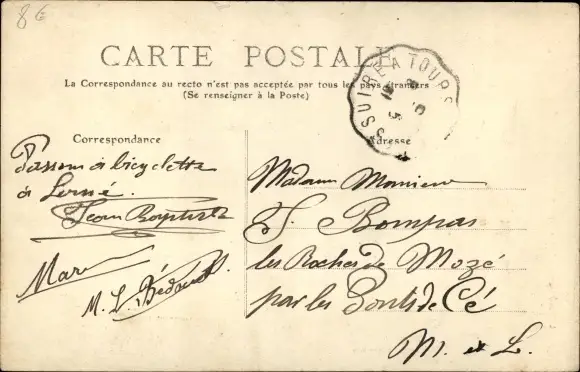 8€
CARTE POSTALE
La Correspondance au recto n'est pas acceptée par tous les pays étrangers
(Se renseigner à la Poste)
BRESSUIRE A TOURS
Correspondance
Adresse
Passons à bicyclette
à Lerné.
Jean Baptiste
M. L. Bédouet
Madame Monsieur
J. Bompas
les Roches de Mozé
par les Ponts de Cé
M. et L.